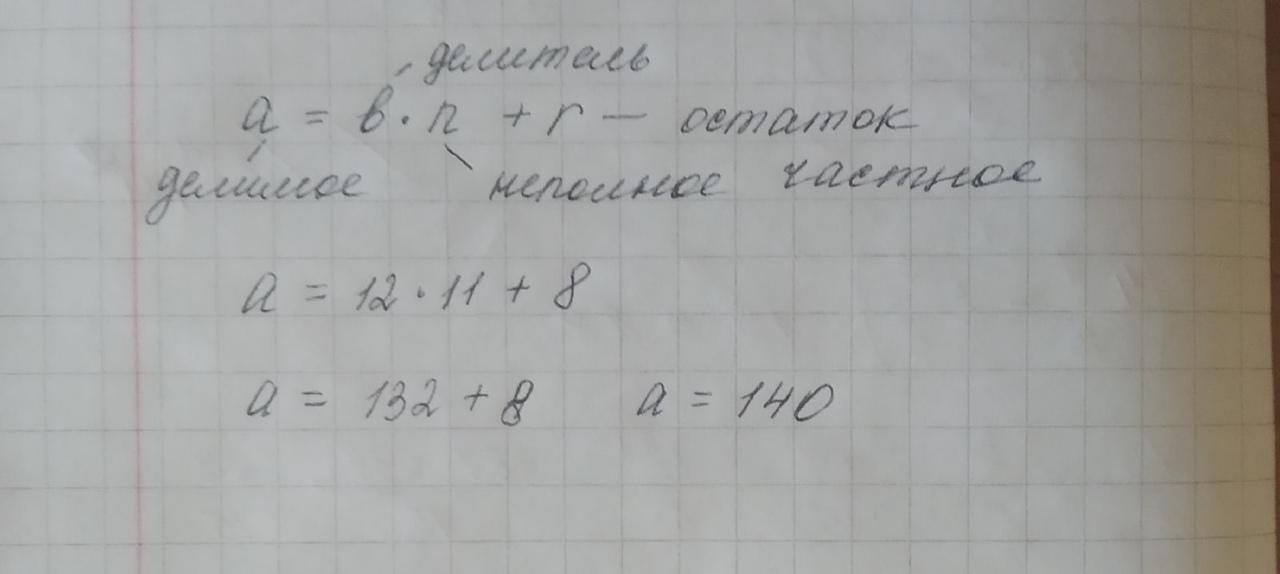 делитель
a = в · n + r — остаток
делимое неполное частное
a = 12 · 11 + 8
a = 132 + 8 a = 140